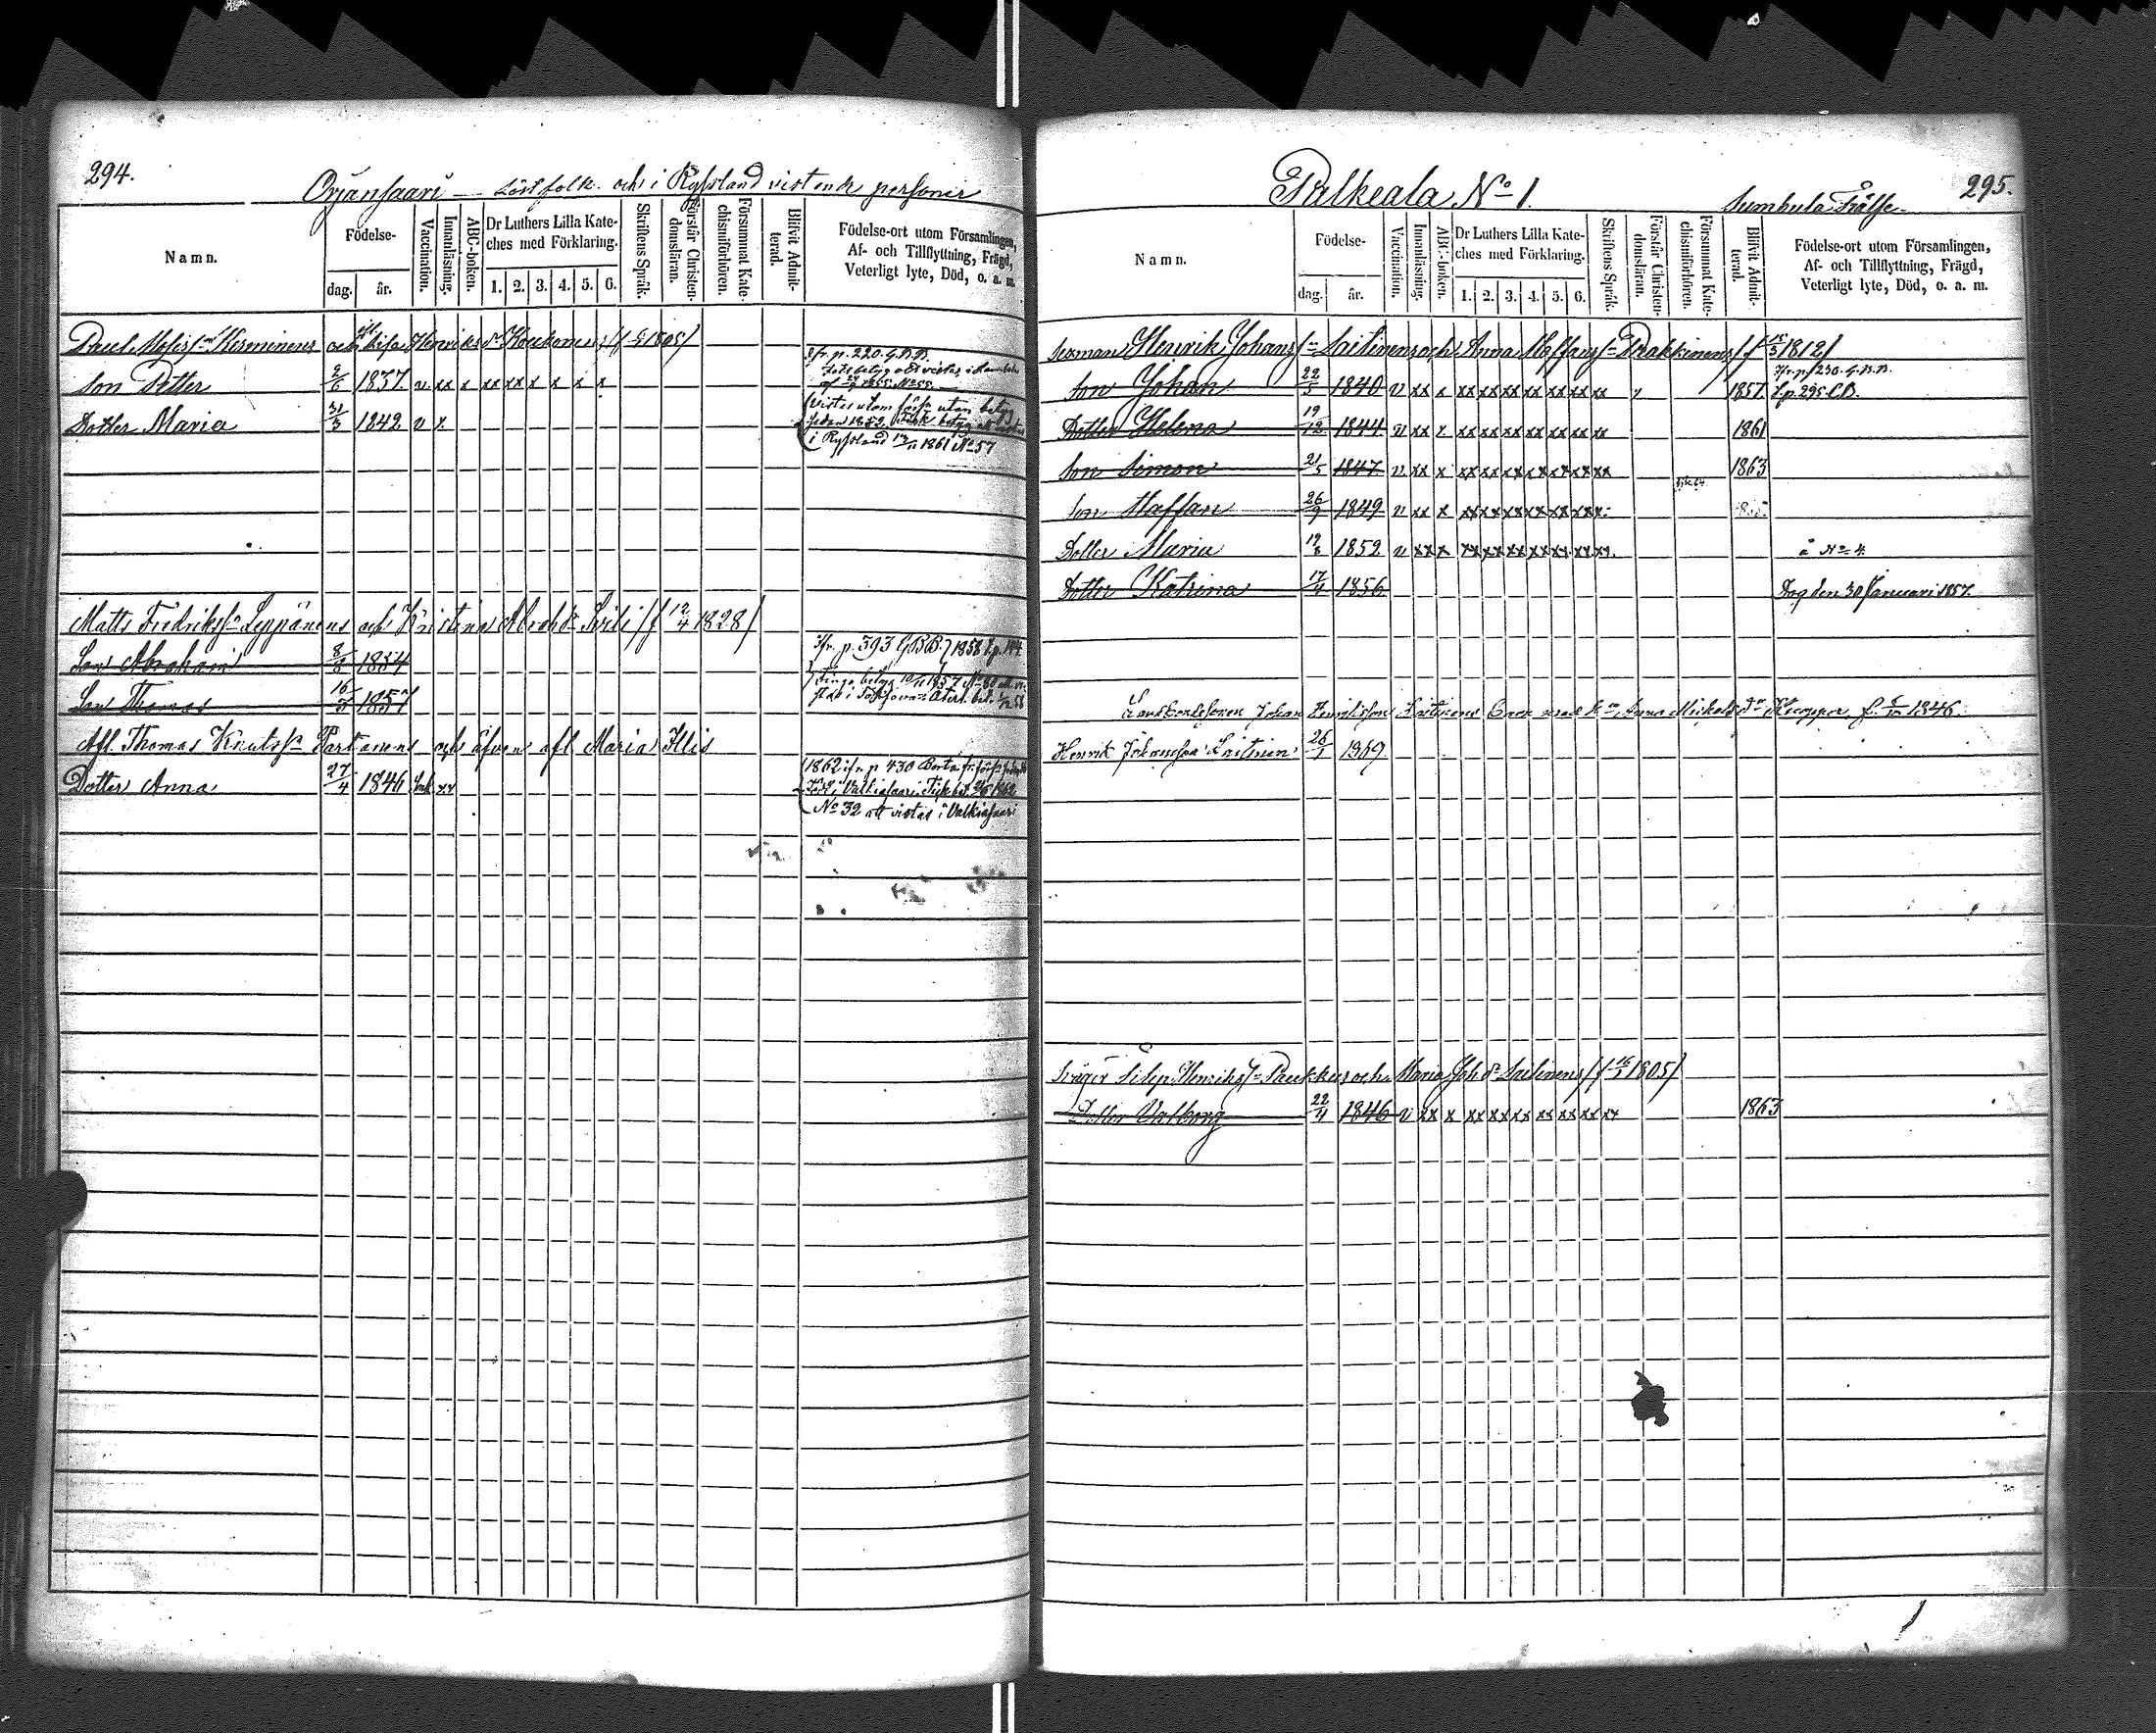 294.
Orjansaari — Löst folk och i Ryssland vistende personer
Namn.
Födelse-
dag.
år.
Vaccination.
Innanläsning.
ABC-boken.
Dr Luthers Lilla Kate-
ches med Förklaring.
1. 2. 3. 4. 5. 6.
Skriftens Språk.
Förstår Christen-
domsläran.
Försummat Kate-
chismiförhören.
Blifvit Admit-
terad.
Födelse-ort utom Församlingen,
Af- och Tillflyttning, Frägd,
Veterligt lyte, Död, o. a. m.
Paul Mosisson och Henriks dr 1805)
fr. p. 220. G.B.B.
Son Petter 2/6 1837 v xx x xx xx x x x x
Dotter Maria 31/3 1842 v x
Vistas utom förs. utan betyg
sedan 1852
i Ryssland 1861 No 57
Matts Fredriksson Leppänen och Kristina Abrah dr (f 12/4 1828)
Son Abraham 8/8 1854
fr. p. 393 G.B.B. 1858
Son Thomas 16/3 1857
betyg 1857
Afl. Thomas Knutsson Partanen och äfven afl Maria Illis
Dotter Anna 27/4 1846 xx
1862 ifr. p 430 Borta
No 32 att vistas i Valkiasaari
Palkeala No 1.
Sumbula Frälse
295.
Namn.
Födelse-
dag.
år.
Vaccination.
Innanläsning.
ABC-boken.
Dr Luthers Lilla Kate-
ches med Förklaring.
1. 2. 3. 4. 5. 6.
Skriftens Språk.
Förstår Christen-
domsläran.
Försummat Kate-
chismiförhören.
Blifvit Admit-
terad.
Födelse-ort utom Församlingen,
Af- och Tillflyttning, Frägd,
Veterligt lyte, Död, o. a. m.
Sexman Henrik Johans sn Laitinen och Anna Staffans (f 1812)
fr. p. 230. G.B.B.
Son Johan 22/5 1840 v xx x xx xx xx xx xx xx xx 1857 p. 295 C.B.
Dotter Helena 19/12 1844 v xx x xx xx xx xx xx xx xx 1861
Son Simon 21/5 1847 v xx x xx xx xx xx xx xx xx 1863
Son Staffan 26/9 1849 v xx x xx xx xx xx xx xx xx
Dotter Maria 1852 v xx x xx xx xx xx xx xx xx å No 4
Dotter Katrina 17/4 1856 Dog den 30 Januari 1857.
Landbondesonen Johan Henriksson Laitinen med Anna Mickels dr f. 1846.
Henrik Johansson Laitinen 26/1 1869
Svåger Filip Henriks sn Paukku och Maria Joh dr Laitinen (f 1805)
Dotter Valborg 22/4 1846 v xx x xx xx xx xx xx xx xx 1863